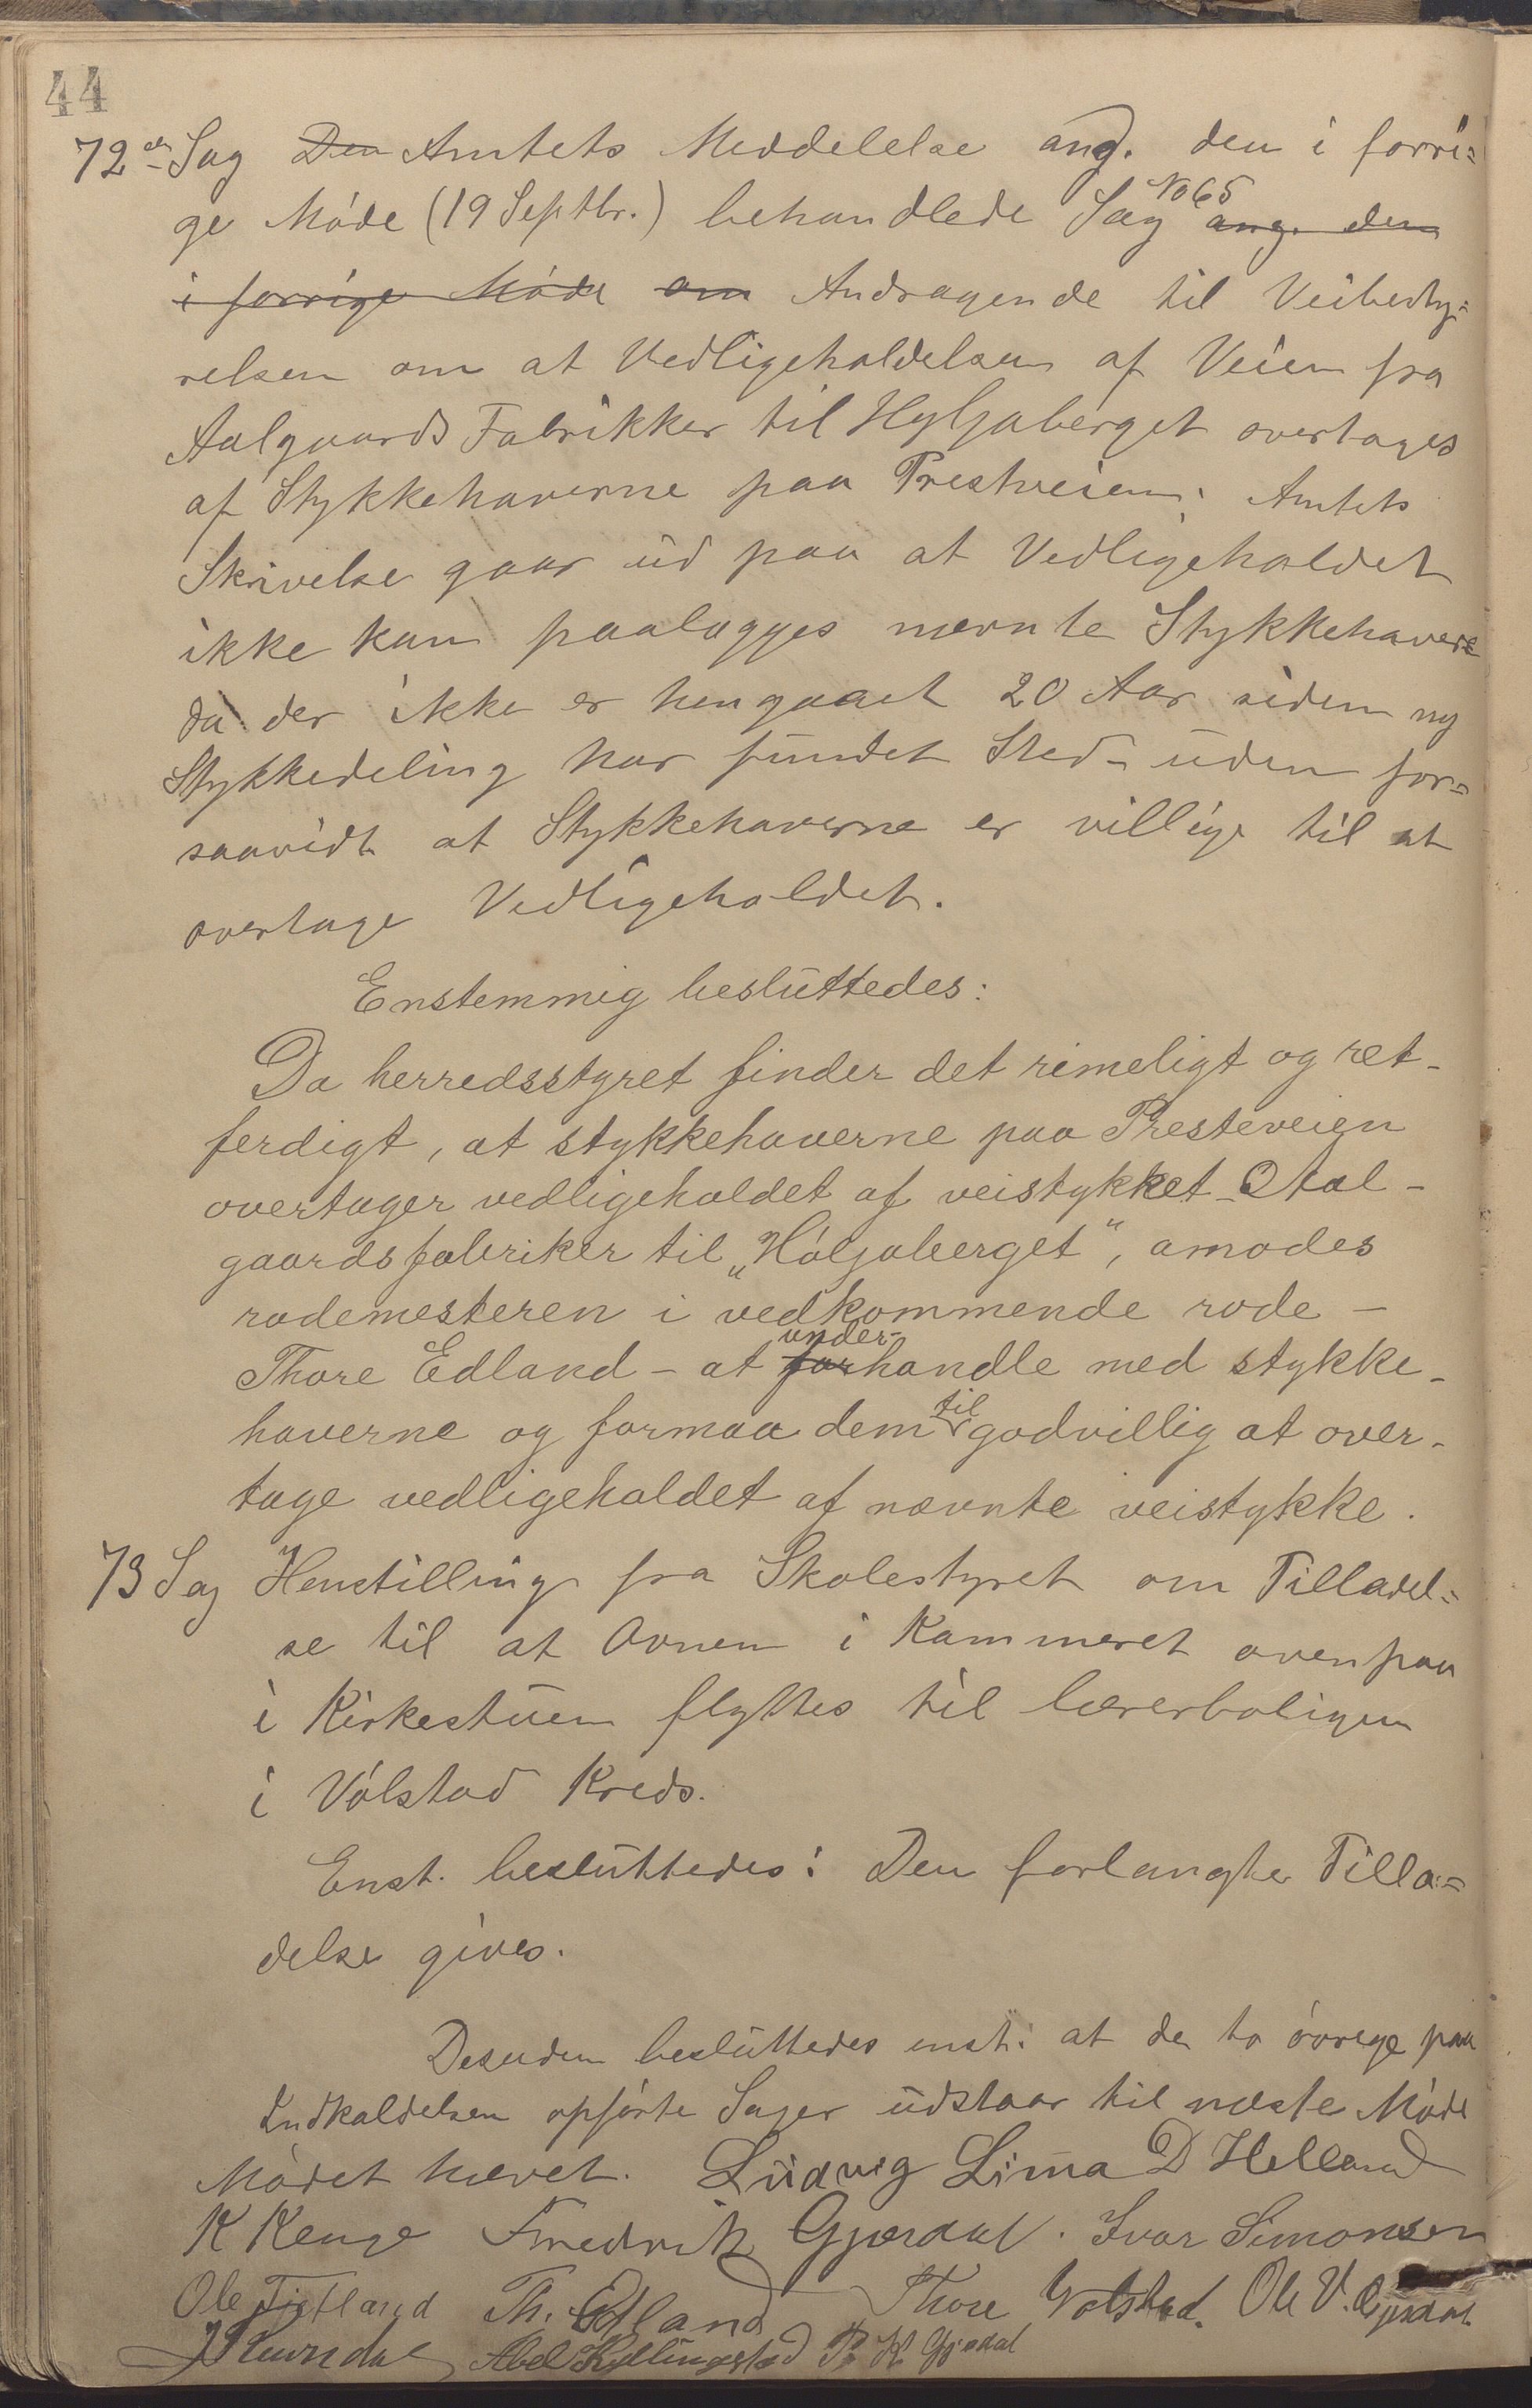 44
72de Sag Den Amtets Meddelelse ang. den i forri=
ge Møde (19 Septbr.) behandlede Sag No 65 ang. den
i forrige Møde om Andragende til Veibesty=
relsen om at Vedligeholdelsen af Veien fra
Aalgaards Fabrikker til Hyljaberget overtages
af Stykkehaverne paa Prestveien; Amtets
Skrivelse gaar ud paa at Vedligeholdet
ikke kan paalægges nævnte Stykkehavere
da der ikke er hengaaet 20 Aar siden ny
Stykkedeling har fundet Sted - uden for=
saavidt at Stykkehaverne er villige til at
overtage Vedligeholdet.
Enstemmig besluttedes:
Da herredsstyret finder det rimeligt og ret-
ferdigt, at stykkehaverne paa Presteveien
overtager vedligeholdet af veistykket Aal-
gaards fabriker til „Høljaberget“, amodes
rodemesteren i vedkommende rode -
Thore Edland - at for under-handle med stykke-
haverne og formaa dem til godvillig at over-
tage vedligeholdet af nævnte veistykke.
73 Sag Henstilling fra Skolestyret om Tilladel=
se til at Ovnen i Kammeret ovenpaa
i Kirkestuen flyttes til lærerboligen
i Vølstad Kreds.
Enst. besluttedes: Den forlangte Tilla=
delse gives.
Desuden besluttedes enst. at de to øvrige paa
Indkaldelsen opførte Sager udstaar til næste Møde
Mødet hævet. Ludvig Lima D Helland
K Kenge Fredrik Gjærdal. Ivar Simonsen
Ole Fjetland Th. Edland Thore Volstad. Ole V. Gjesdal
Abel Kyllingstad P. K. Gjesdal